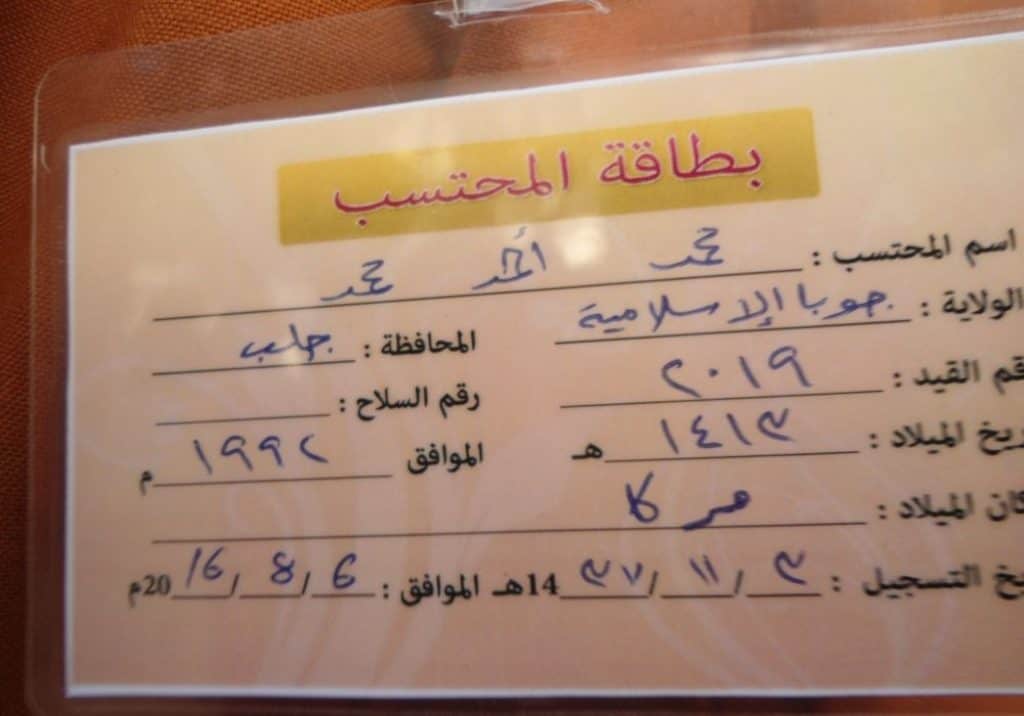 بطاقة المحتسب
اسم المحتسب : محمد أحمد محمد
الولاية : جوبا الإسلامية المحافظة : جلب
قم القيد : ٢٠١٩ رقم السلاح :
ريخ الميلاد : ١٤١٣ هـ الموافق ١٩٩٢ م
كان الميلاد : مركا
يخ التسجيل : ٣ / ١١ / ٣٧ 14هـ الموافق : 6 / 8 / 16 20م